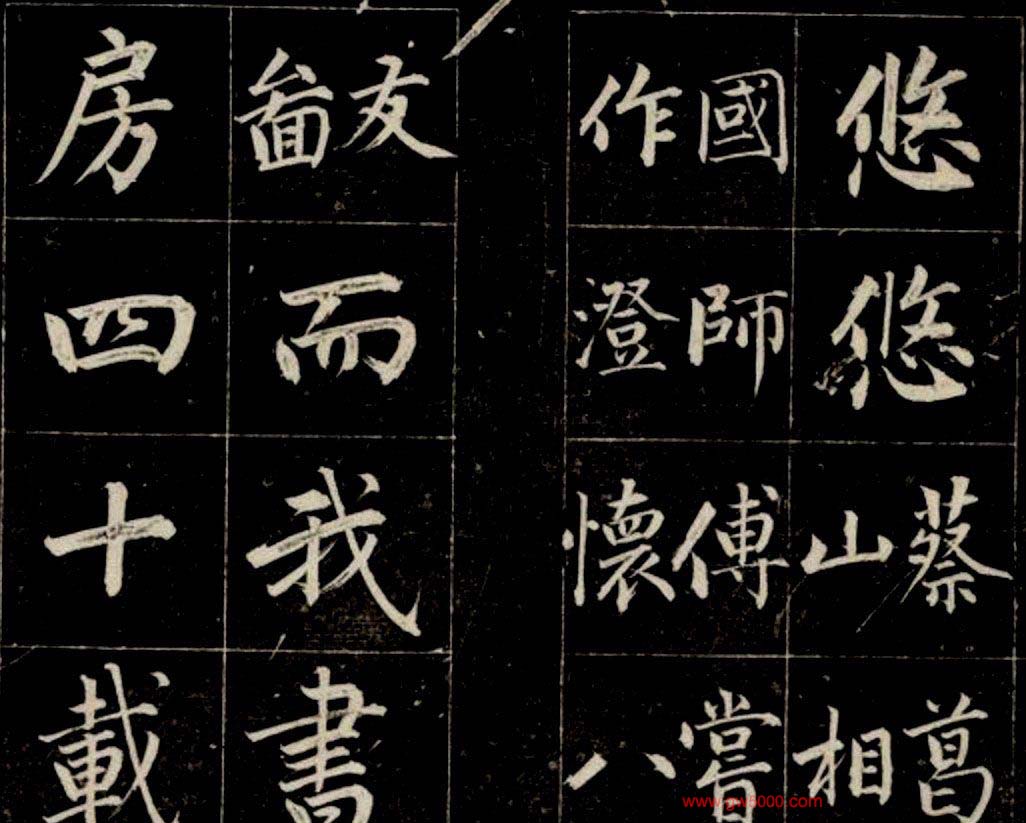 悠悠
蔡葛
山相
國師傅嘗
作澄懷八
友
啚
而我書
房四十載